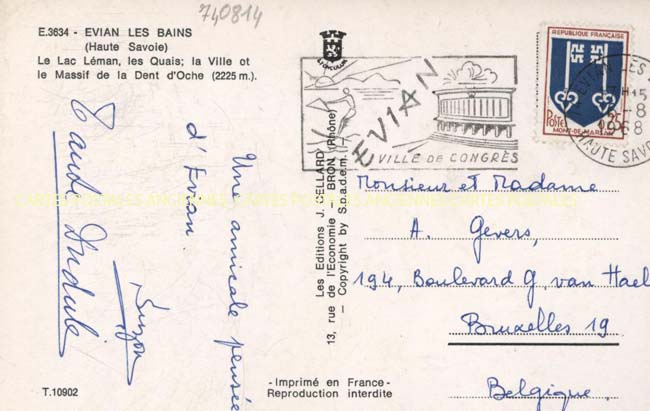 740814
E.3634 - EVIAN LES BAINS
(Haute Savoie)
Le Lac Léman, les Quais; la Ville et
le Massif de la Dent d'Oche (2225 m.).
Une amicale pensée
d'Evian.
Suzon
LYONCOLOR
EVIAN
VILLE DE CONGRÈS
REPUBLIQUE FRANÇAISE
POSTES
25
MONT-DE-MARSAN
EVIAN LES
15
8
68
HAUTE SAVOIE
Les Editions J. CELLARD
13, rue de l'Economie - BRON (Rhône)
Copyright by S.p.a.d.e.m.
Monsieur et Madame
A. Gevers,
194, Boulevard G. van Hael
Bruxelles 19
Belgique.
T.10902
- Imprimé en France -
Reproduction interdite